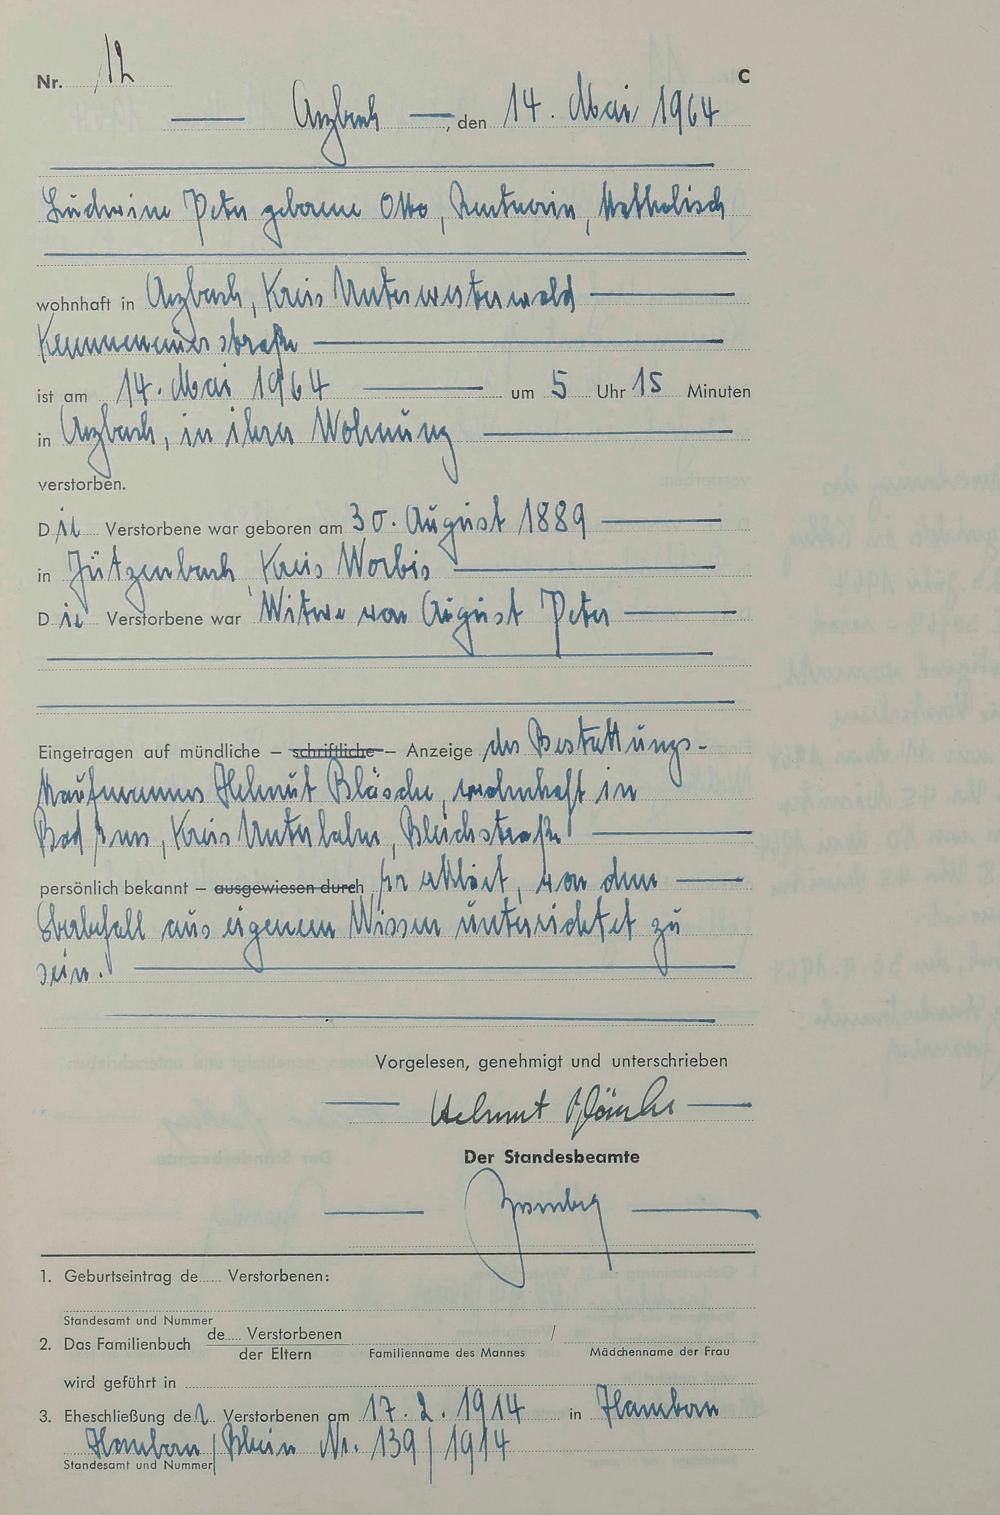 Nr. 12 C
Arzbach, den 14. Mai 1964
Ludwine Peter geborene Otto, Rentnerin, katholisch
wohnhaft in Arzbach, Kreis Unterwesterwald
Kemmenauerstraße
ist am 14. Mai 1964 um 5 Uhr 15 Minuten
in Arzbach, in ihrer Wohnung
verstorben.
Die Verstorbene war geboren am 30. August 1889
in Jützenbach Kreis Worbis
Die Verstorbene war Witwe von August Peter
Eingetragen auf mündliche – schriftliche – Anzeige des Bestattungs-
kaufmannes Helmut Bläsche, wohnhaft in
Bad Ems, Kreis Unterlahn, Bleichstraße
persönlich bekannt – ausgewiesen durch er erklärt, von dem
Sterbefall aus eigenem Wissen unterrichtet zu
sein.
Vorgelesen, genehmigt und unterschrieben
Helmut
Der Standesbeamte
1. Geburtseintrag de...... Verstorbenen:
Standesamt und Nummer
2. Das Familienbuch de..... Verstorbenen /
der Eltern Familienname des Mannes Mädchenname der Frau
wird geführt in
3. Eheschließung der Verstorbenen am 17.2.1914 in Hamborn
Hamborn/Rhein Nr. 139/1914
Standesamt und Nummer